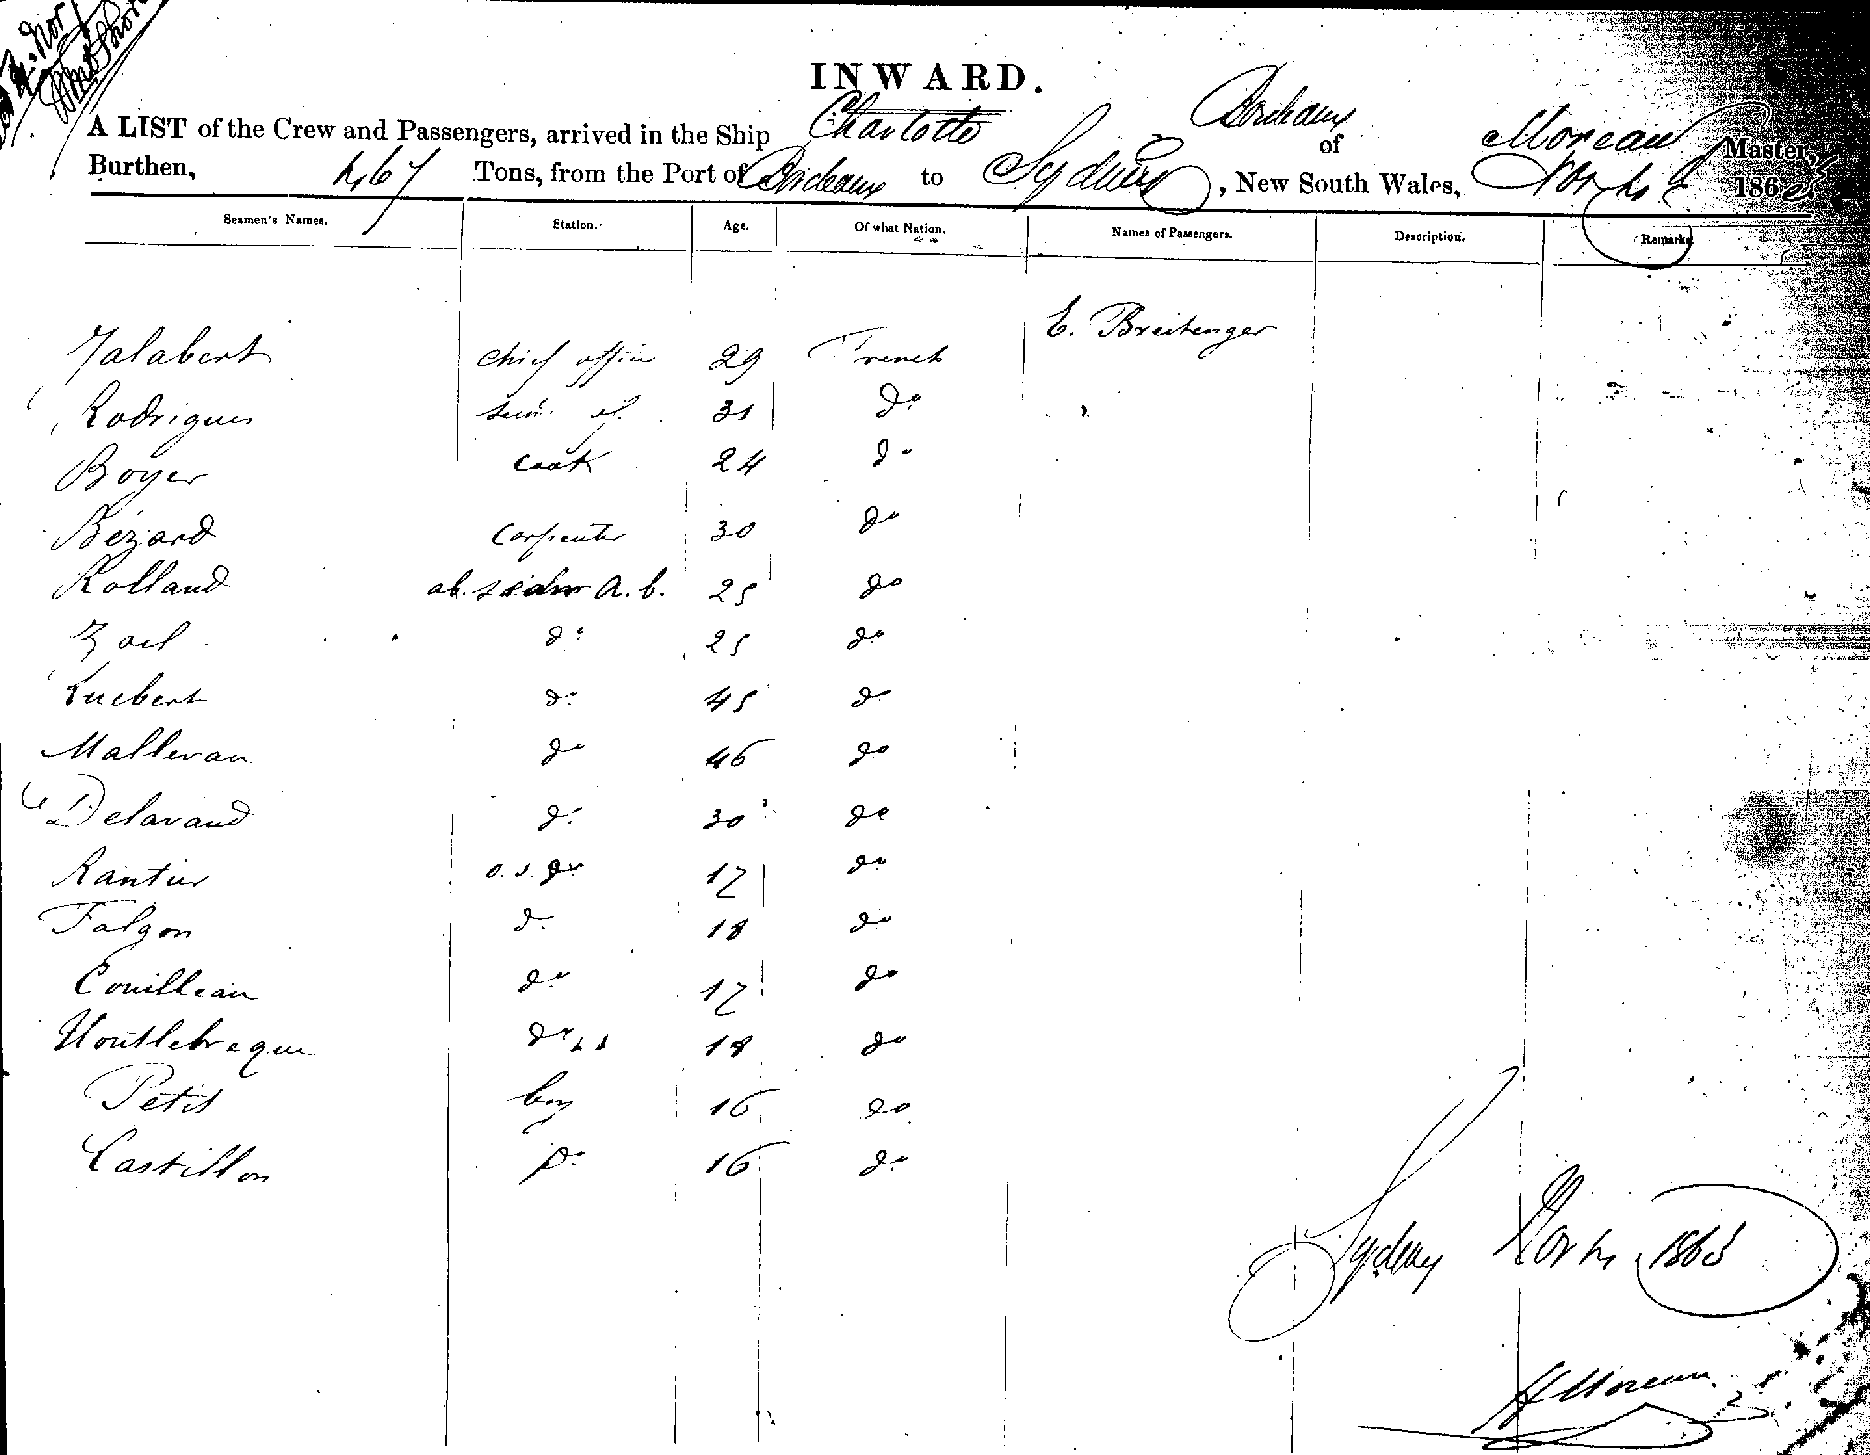 INWARD.
A LIST of the Crew and Passengers, arrived in the Ship Charlotte of Bordeaux Moreau Master,
Burthen, 467 Tons, from the Port of Bordeaux to Sydney, New South Wales, Nov 186
Seamen's Names. Station. Age. Of what Nation. Names of Passengers. Description. Remarks
E. Breitenger
Jalabert chief office 29 French
Rodrigues 31 do
Boyer cook 24 do
Bézard Carpenter 30 do
Rolland ab. A. b. 25 do
do 25 do
Luebert do 45 do
Mallevan do 46 do
Delavaud do 30 do
Rantier o. s. do 17 do
Falgon do 18 do
Couilleau do 17 do
do 18 do
Petit boy 16 do
Castillon do 16 do
Sydney Nov 1863
H Moreau